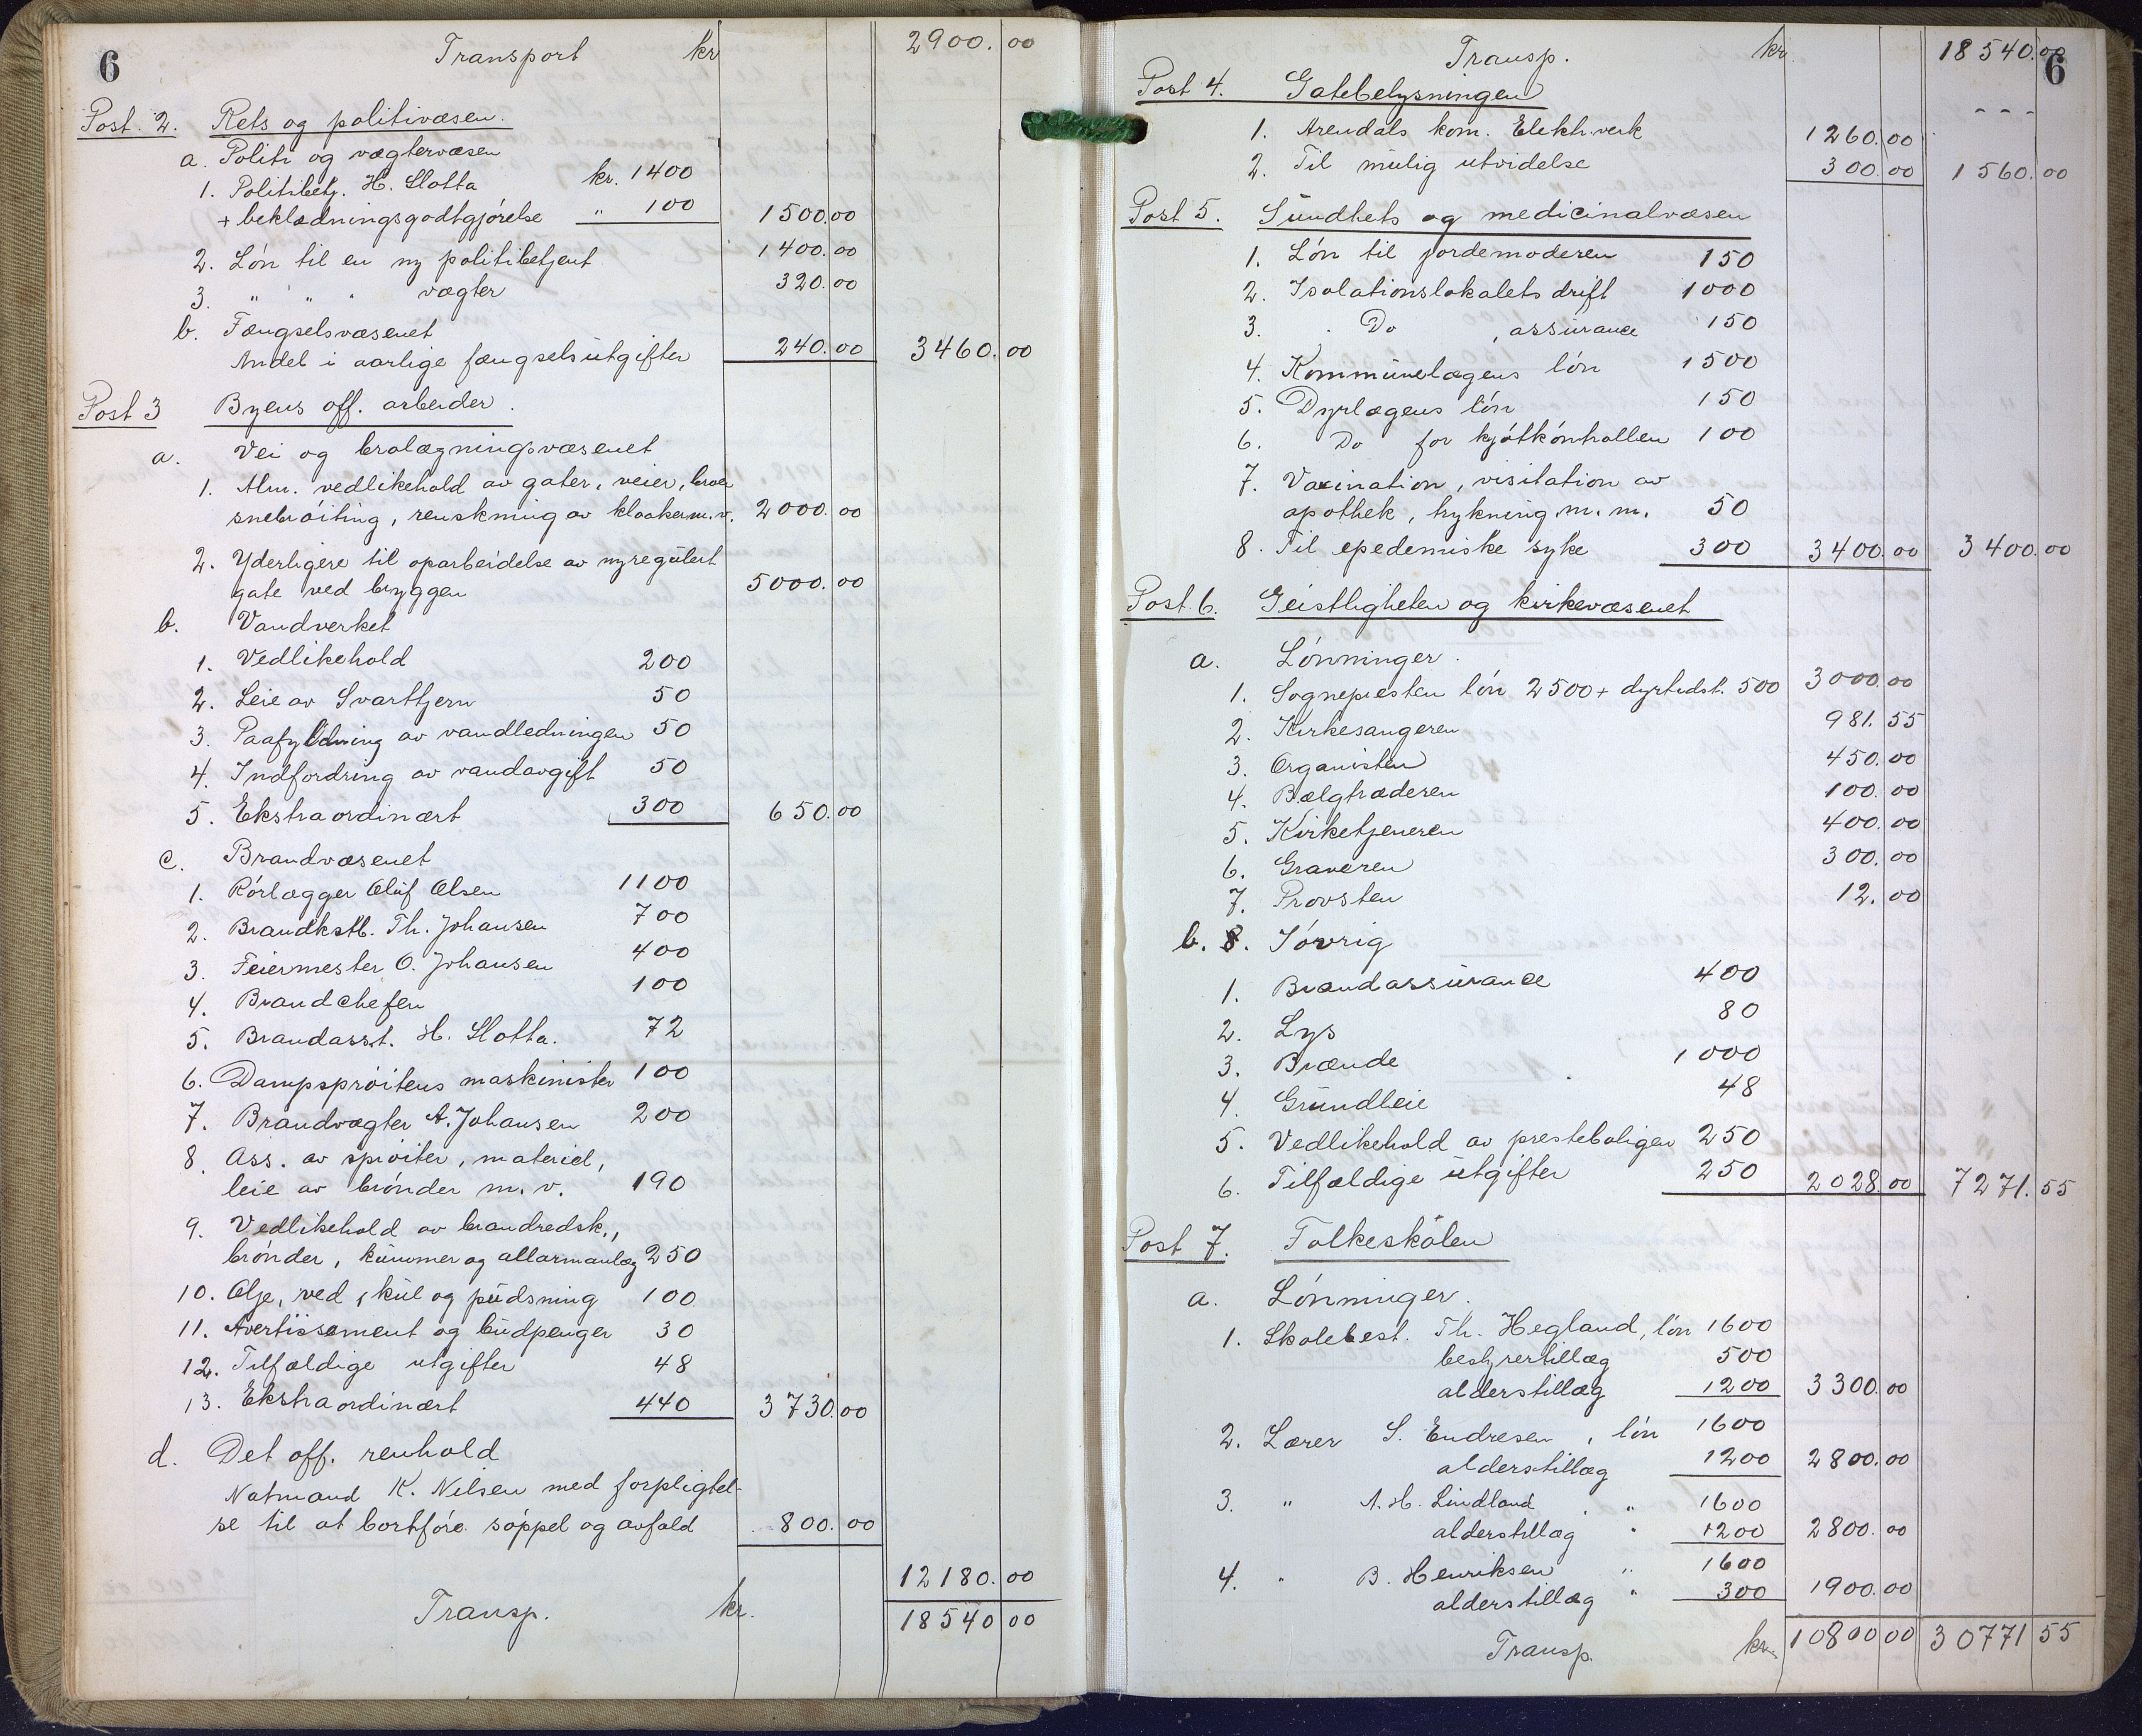 6
Transport kr 2900.00
Post. 2. Rets og politivæsen.
a. Politi og vægtervæsen
1. Politibetj. H. Slotta kr. 1400
+ beklædningsgodtgjørelse " 100 1500.00
2. Løn til en ny politibetjent 1400.00
3. " " " vægter 320.00
b. Fængselsvæsenet
Andel i aarlige fængselsutgifter 240.00 3460.00
Post 3 Byens off. arbeider.
a. Vei og brolægningsvæsenet
1. Alm. vedlikehold av gater, veier, broer
snebrøiting, renskning av kloaker m.v. 2000.00
2. Yderligere til oparbeidelse av nyregulert
gate ved bryggen 5000.00
b. Vandverket
1. Vedlikehold 200
2. Leie av Svarttjern 50
3. Paafyldning av vandledningen 50
4. Indfordring av vandavgift 50
5. Ekstraordinært 300 650.00
c. Brandvæsenet
1. Rørlægger Oluf Olsen 1100
2. Brandkstb. Th. Johansen 700
3. Feiermester O. Johansen 400
4. Brandchefen 100
5. Brandasst. H. Slotta. 72
6. Dampsprøitens maskinister 100
7. Brandvægter A. Johansen 200
8. Ass. av sprøiter, materiel,
leie av brønder m.v. 190
9. Vedlikehold av brandredsk.,
brønder, kummer og allarmanlæg 250
10. Olje, ved, kul og pudsning 100
11. Avertissement og budpenger 30
12. Tilfældige utgifter 48
13. Ekstraordinært 440 3730.00
d. Det off. renhold
Natmand K. Nilsen med forpligtel-
se til at bortføre søppel og avfald 800.00
12180.00
Transp. kr. 18540 00
6
Transp. kr. 18540.00
Post 4. Gatebelysningen - - -
1. Arendals kom. Elektr.verk 1260.00
2. Til mulig utvidelse 300.00 1560.00
Post 5. Sundhets og medicinalvæsen
1. Løn til jordemoderen 150
2. Isolationslokalets drift 1000
3. Do , assurance 150
4. Kommunelægens løn 1500
5. Dyrlægens løn 150
6. Do for kjøtkontrollen 100
7. Vaxination, visitation av
apothek, trykning m.m. 50
8. Til epedemiske syke 300 3400.00 3400.00
Post. 6. Geistligheten og kirkevæsenet
a. Lønninger.
1. Sognepresten løn 2500 + dyrtidst. 500 3000.00
2. Kirkesangeren 981.55
3. Organisten 450.00
4. Bælgtræderen 100.00
5. Kirketjeneren 400.00
6. Graveren 300.00
7. Provsten 12.00
b. 8. Iøvrig
1. Brandassurance 400
2. Lys 80
3. Brænde 1000
4. Grundleie 48
5. Vedlikehold av presteboligen 250
6. Tilfældige utgifter 250 2028.00 7271.55
Post 7. Folkeskolen
a. Lønninger.
1. Skolebest. Th. Hegland, løn 1600
bestyrertillæg 500
alderstillæg 1200 3300.00
2. Lærer S. Endresen, løn 1600
alderstillæg 1200 2800.00
3. " A.H. Lindland " 1600
alderstillæg " 1200 2800.00
4. " B. Henriksen " 1600
alderstillæg " 300 1900.00
Transp. kr. 10800 00 30771 55